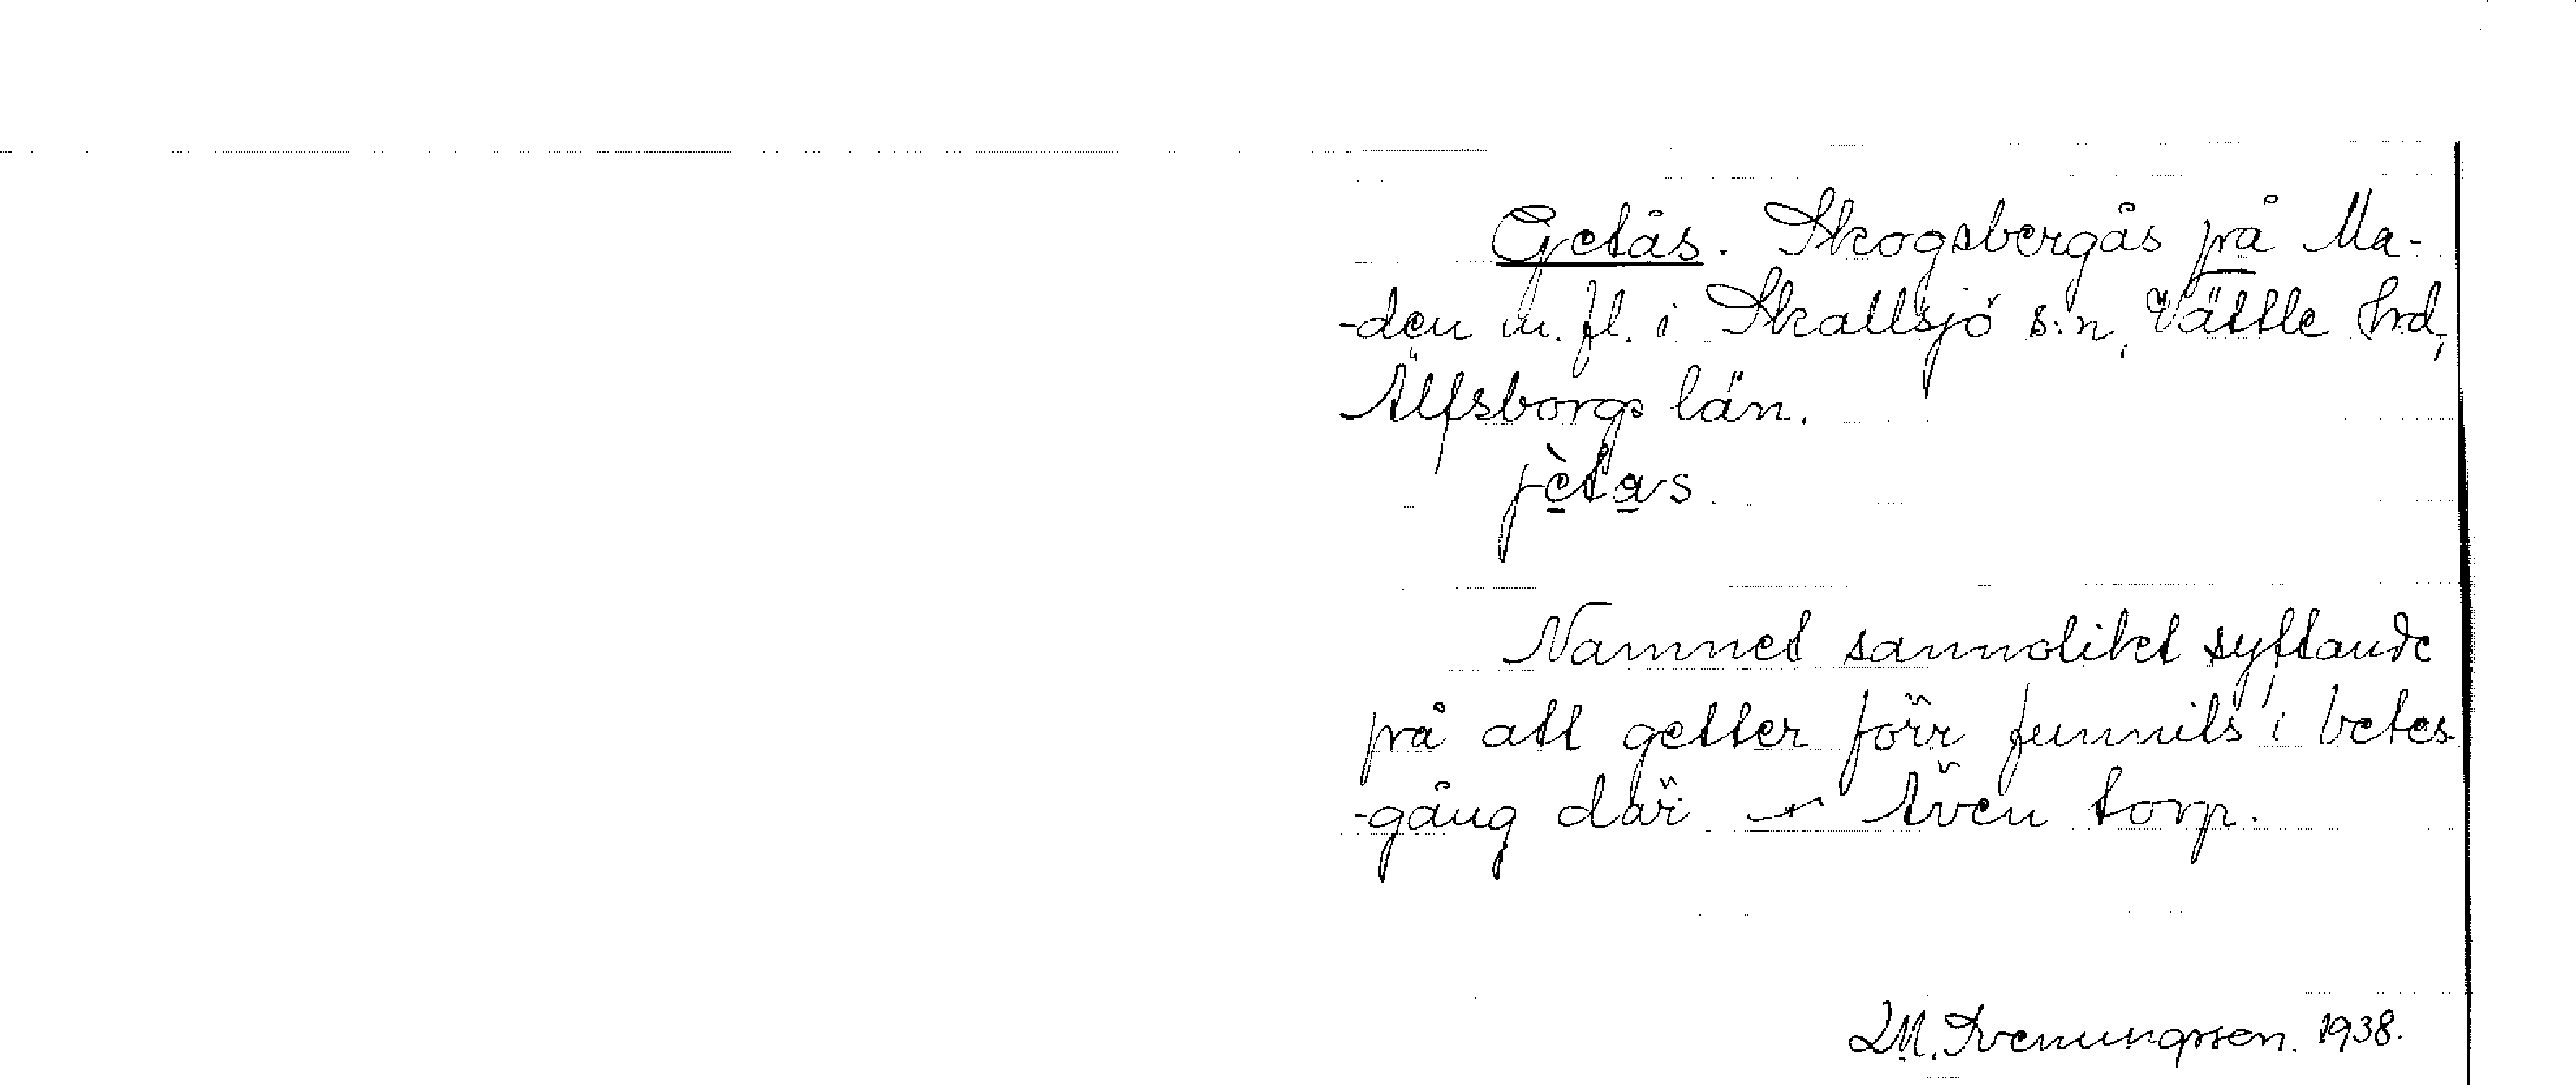 Getås. Skogsbergås på Ma-
-den m. fl. i Skallsjö s:n, Vättle hd,
Älfsborgs län.
jètas.
Namnet sannolikt syftande
på att getter förr funnits i betes
-gång där. – Även torp.
D.M. Svenungsson. 1938.